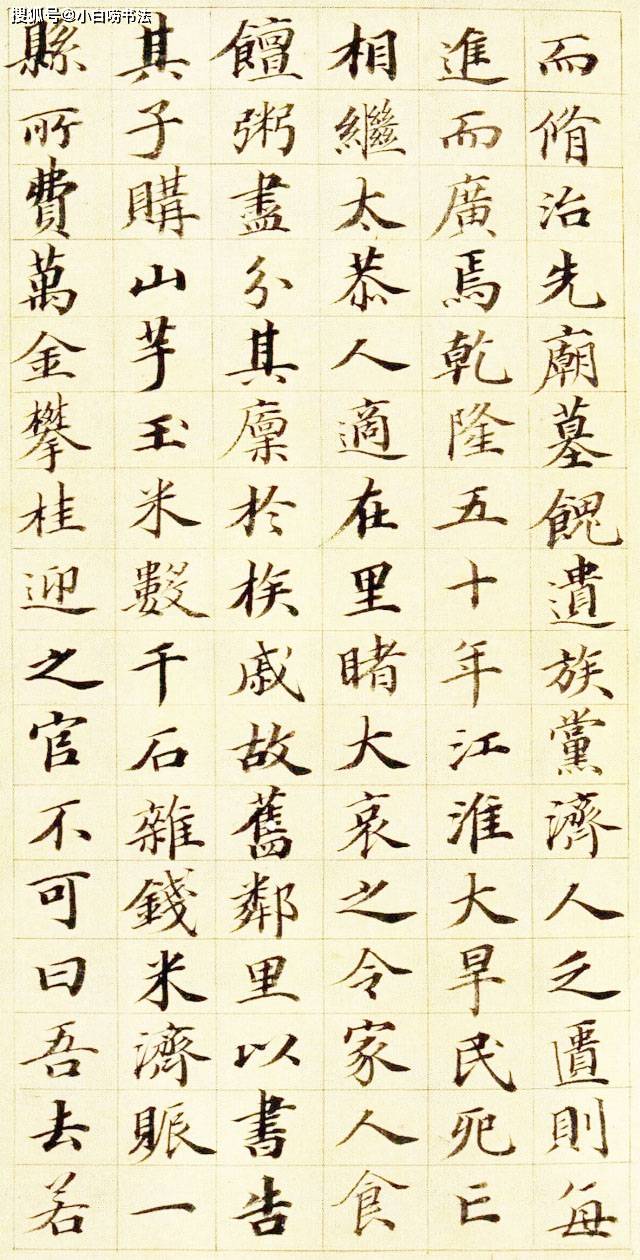 搜狐号@小白唠书法
而脩治先廟墓餽遺族黨濟人之匱則每
進而廣焉乾隆五十年江淮大旱民死亡
相繼太恭人適在里睹大哀之令家人食
饘粥盡分其廩於族戚故舊鄰里以書告
其子購山芋玉米數千石雜錢米濟賑一
縣所費萬金攀桂迎之官不可曰吾去若